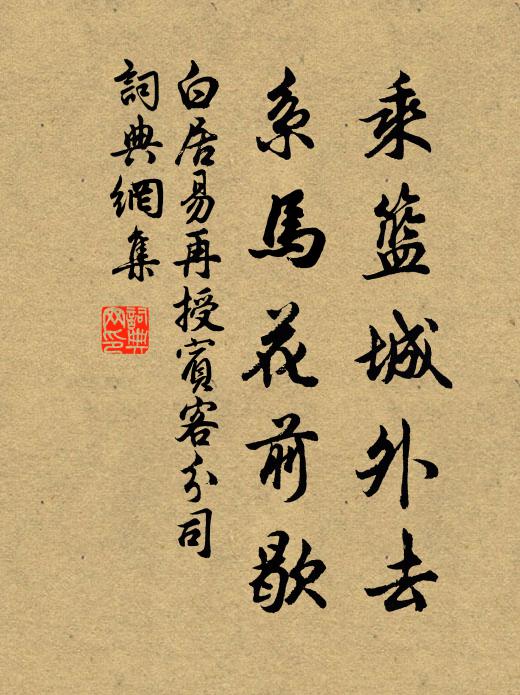 乘籃城外去
系馬花前歇
白居易再授賓客分司
詞典網集
詞典網印